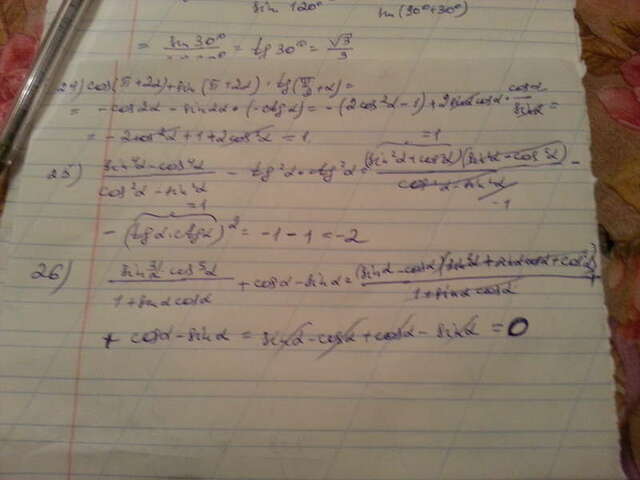 sin 120° sin(30°+30°)
= sin 30° = tg 30° = √3/3
24) cos(π+2α)+sin(π+2α)·tg(π/2+α)=
= -cos2α - sin2α·(-ctgα) = -(2cos²α-1)+2sinαcosα·cosα/sinα =
= -2cos²α+1+2cos²α = 1.
25) (sin⁴α-cos⁴α)/(cos²α-sin²α) - tg²α·ctg²α = (sin²α+cos²α)(sin²α-cos²α)/(cos²α-sin²α) -
=1 =1 -1
- (tgα·ctgα)² = -1-1 = -2
26) (sin³α-cos³α)/(1+sinαcosα) + cosα-sinα = (sinα-cosα)(sin²α+sinαcosα+cos²α)/(1+sinα cosα) +
+ cosα-sinα = sinα-cosα+cosα-sinα = 0